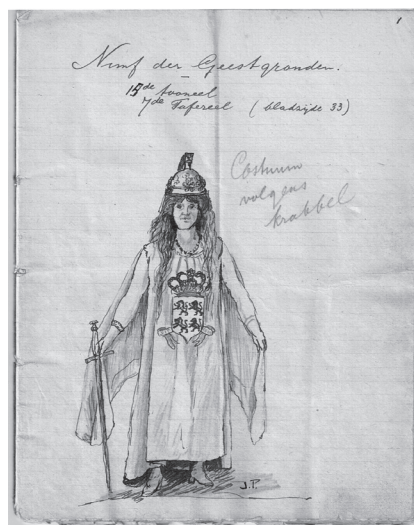 1
Nimf der Geestgronden:
15de tooneel
7de Tafereel (bladzijde 33)
Costuum
volgens
krabbel
J.P.